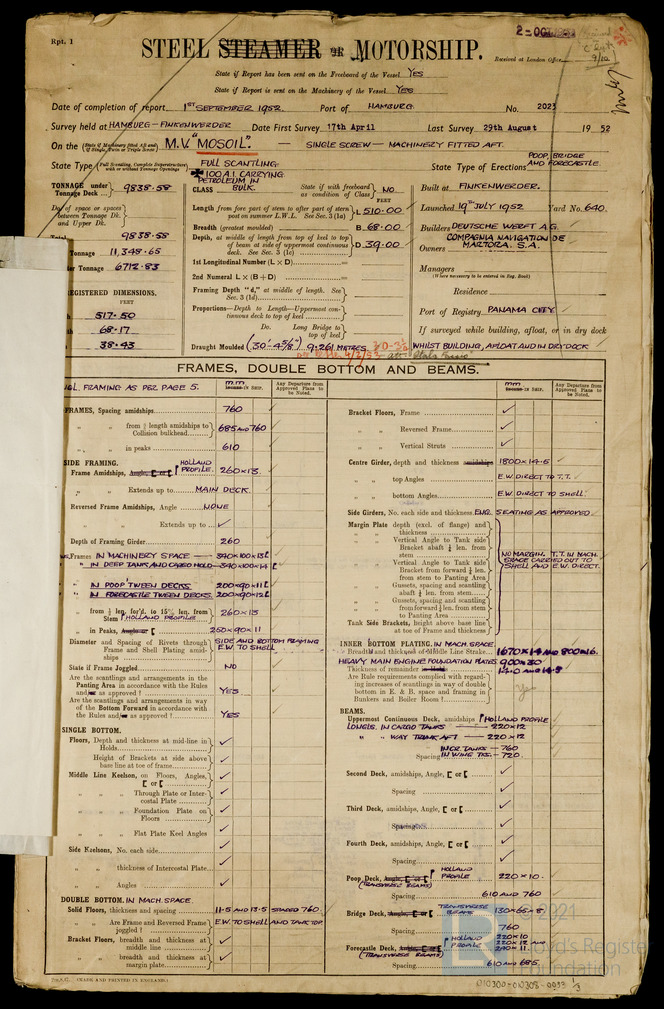 Rpt. 1
2 - OCT 1952
STEEL STEAMER OR MOTORSHIP.
Received at London Office
State if Report has been sent on the Freeboard of the Vessel YES
State if Report is sent on the Machinery of the Vessel YES
Date of completion of report 1ST SEPTEMBER 1952. Port of HAMBURG. No. 2023
Survey held at HAMBURG-FINKENWERDER Date First Survey 17th April Last Survey 29th August 19 52
On the (State if Machinery fitted Aft and if Single, Twin or Triple Screw) M.V. "MOSOIL". — SINGLE SCREW — MACHINERY FITTED AFT.
State Type (Full Scantling, Complete Superstructure with or without Tonnage Openings) FULL SCANTLING. State Type of Erections POOP, BRIDGE AND FORECASTLE.
TONNAGE under Tonnage Deck ... 9838.58
CLASS ✠100A1. CARRYING PETROLEUM IN BULK. State if with freeboard as condition of Class NO
Built at FINKENWERDER.
Do. of space or spaces between Tonnage Dk. and Upper Dk.
Length from fore part of stem to after part of stern post on summer L.W.L. See Sec. 3 (1a) L 510.00 FEET
Launched 19TH JULY 1952 Yard No. 640.
Breadth (greatest moulded) B. 68.00
Builders DEUTSCHE WERFT A.G.
Total 9838.58
Depth, at middle of length from top of keel to top of beam at side of uppermost continuous deck. See Sec. 3 (1c) D. 39.00
Owners COMPAGNIA NAVIGATION DE MARTORA. S.A.
Tonnage 11,348.65
1st Longitudinal Number (L × D)
Managers
(Where necessary to be entered in Reg. Book)
6712.83
2nd Numeral L × (B + D)
Residence
REGISTERED DIMENSIONS.
FEET
Framing Depth "d," at middle of length. See Sec. 3 (1d)
517.50
Proportions—Depth to Length—Uppermost continuous deck to top of keel
Port of Registry PANAMA CITY
68.17
Do. Long Bridge to top of keel
If surveyed while building, afloat, or in dry dock
38.43
Draught Moulded (30'-4⅝") 9.261 METRES WHILST BUILDING, AFLOAT AND IN DRY DOCK
FRAMES, DOUBLE BOTTOM AND BEAMS.
FRAMING AS PER PAGE 5.
m.m
Any Departure from Approved Plans to be Noted.
mm
Any Departure from Approved Plans to be Noted.
FRAMES, Spacing amidships 760
" " from ⅕ length amidships to Collision bulkhead 685 AND 760
" " in peaks 610
SIDE FRAMING.
Frame Amidships, Angle, [ or [ HOLLAND PROFILE. 260×13.
" " Extends up to MAIN DECK.
Reversed Frame Amidships, Angle NONE
" " Extends up to ✓
Depth of Framing Girder 260
Frames IN MACHINERY SPACE — 340×100×13
" IN DEEP TANK AND CARGO HOLD — 340×100×14
" IN POOP 'TWEEN DECKS. 200×90×11
" IN FORECASTLE TWEEN DECKS. 200×90×12
" from ⅕ len. for'd. to 15% len. from Stem HOLLAND PROFILE 260×13
" in Peaks, Angle or [ 250×90×11
Diameter and Spacing of Rivets through Frame and Shell Plating amidships SIDE AND BOTTOM FRAMING E.W. TO SHELL
State if Frame Joggled NO
Are the scantlings and arrangements in the Panting Area in accordance with the Rules and/or as approved ? YES
Are the scantlings and arrangements in way of the Bottom Forward in accordance with the Rules and/or as approved ? YES
SINGLE BOTTOM.
Floors, Depth and thickness at mid-line in Holds ✓
Height of Brackets at side above base line at toe of frame ✓
Middle Line Keelson, on Floors, Angles, [ or [ ✓
" " Through Plate or Intercostal Plate ✓
" " Foundation Plate on Floors ✓
" " Flat Plate Keel Angles ✓
Side Keelsons, No. each side ✓
" " thickness of Intercostal Plate ✓
" " Angles ✓
DOUBLE BOTTOM. IN MACH. SPACE.
Solid Floors, thickness and spacing 11.5 AND 13.5 SPACED 760
" " Are Frame and Reversed Frame joggled ? E.W. TO SHELL AND TANK TOP
Bracket Floors, breadth and thickness at middle line ✓
" " breadth and thickness at margin plate ✓
Bracket Floors, Frame ✓
" " Reversed Frame ✓
" " Vertical Struts ✓
Centre Girder, depth and thickness amidships 1800×14.5
" " top Angles E.W. DIRECT TO T.T.
" " bottom Angles E.W. DIRECT TO SHELL.
Side Girders, No. each side and thickness ENG. SEATING AS APPROVED.
Margin Plate depth (excl. of flange) and thickness
" " Vertical Angle to Tank side Bracket abaft ¼ len. from stem
" " Vertical Angle to Tank side Bracket from forward ¼ len. from stem to Panting Area
" " Gussets, spacing and scantling abaft ¼ len. from stem
" " Gussets, spacing and scantling from forward ¼ len. from stem to Panting Area
NO MARGIN. T.T. IN MACH. SPACE CARRIED OUT TO SHELL AND E.W. DIRECT.
Tank Side Brackets, height above base line at toe of Frame and thickness
INNER BOTTOM PLATING. IN MACH. SPACE
Breadth and thickness of Middle Line Strake 1670×14 AND 800×16.
HEAVY MAIN ENGINE FOUNDATION PLATES 900×30
Thickness of remainder 14.0 AND 14.5
Are Rule requirements complied with regarding increases of scantlings in way of double bottom in E. & B. space and framing in Bunkers and Boiler Room ? yes
BEAMS.
Uppermost Continuous Deck, amidships HOLLAND PROFILE
LONGLS. IN CARGO TANKS — 220×12
" " WAY TRUNK AFT — 220×12
Spacing IN CR. TANKS — 760 IN WING TKS. — 720.
Second Deck, amidships, Angle, [ or [ ✓
Spacing ✓
Third Deck, amidships, Angle, [ or [ ✓
Spacing ✓
Fourth Deck, amidships, Angle, [ or [ ✓
Spacing ✓
Poop Deck, Angle, [ or [ (TRANSVERSE BEAMS) HOLLAND PROFILE 220×10.
Spacing 610 AND 760
Bridge Deck, Angle, [ or [ TRANSVERSE BEAMS 130×65×8
Spacing 760
Forecastle Deck, Angle, [ or [ (TRANSVERSE BEAMS) HOLLAND PROFILE 220×10 220×12 AND 240×11
Spacing 610 & 685
(MADE AND PRINTED IN ENGLAND.)
© 2021
Lloyd's Register Foundation
010300-010308-0033 1/3